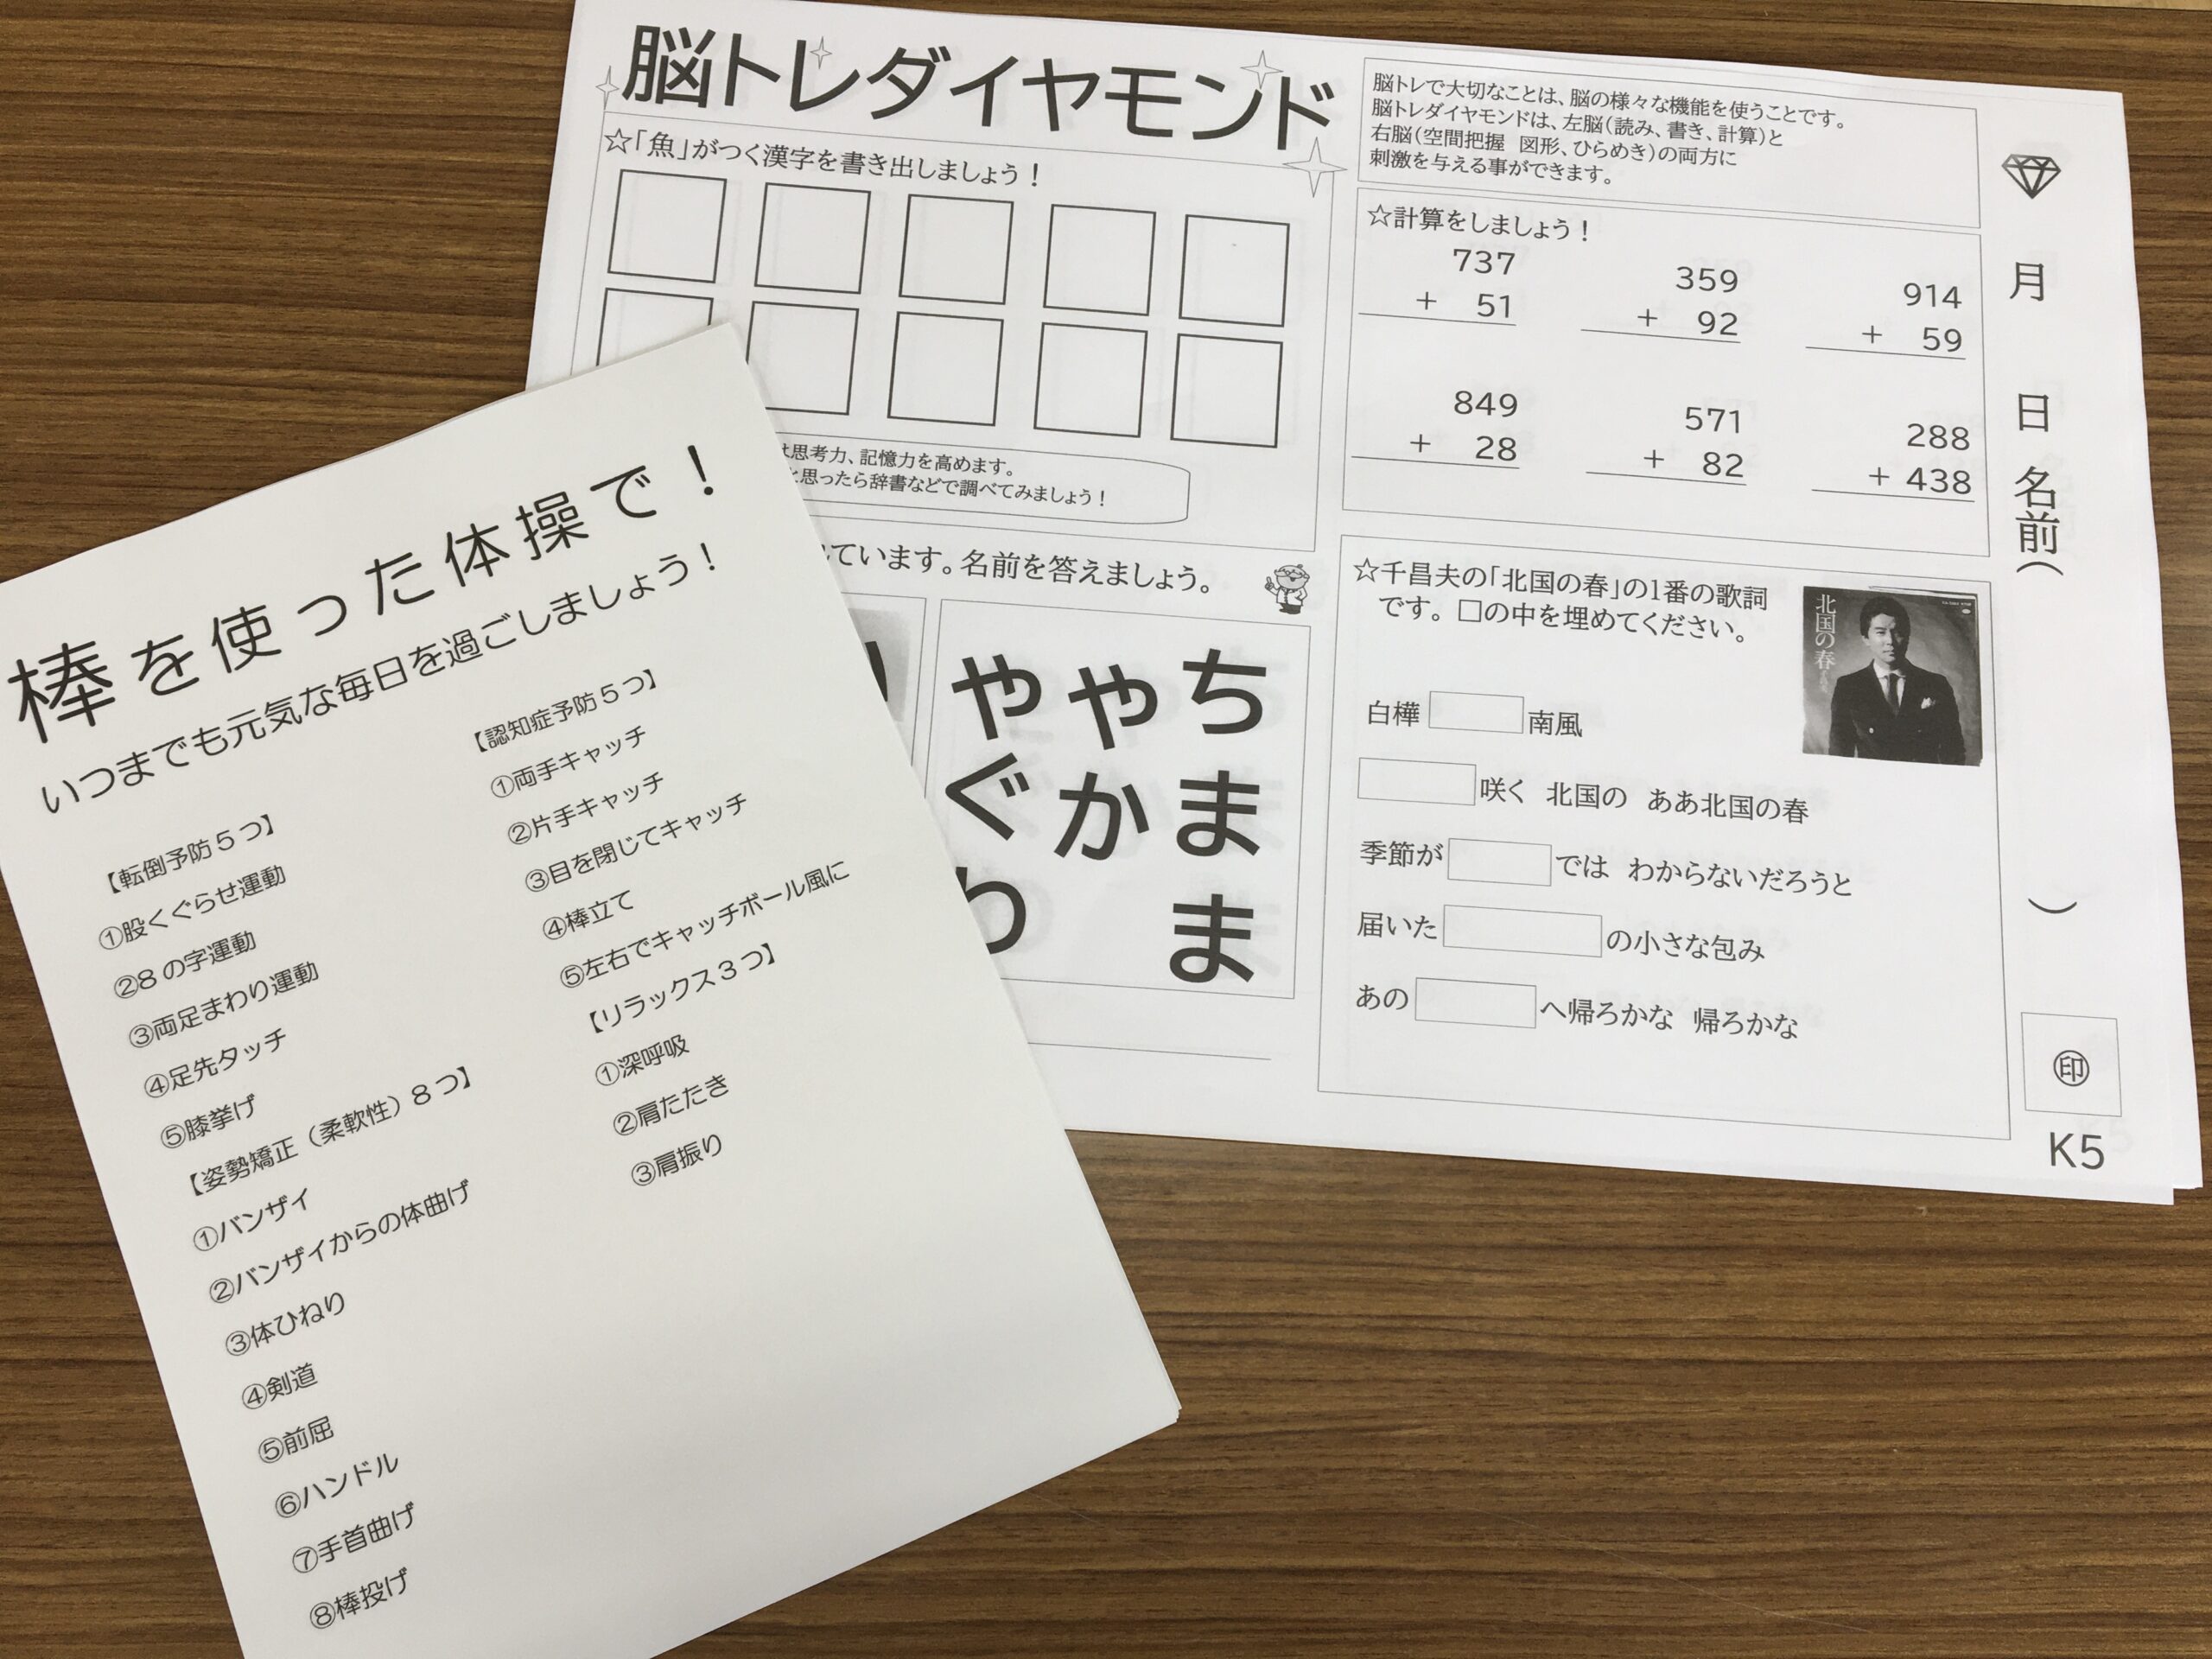 脳トレダイヤモンド
☆「魚」がつく漢字を書き出しましょう！
は思考力、記憶力を高めます。
と思ったら辞書などで調べてみましょう！
ています。名前を答えましょう。
ちまま
やか
やぐり
脳トレで大切なことは、脳の様々な機能を使うことです。
脳トレダイヤモンドは、左脳（読み、書き、計算）と
右脳（空間把握　図形、ひらめき）の両方に
刺激を与える事ができます。
☆計算をしましょう！
737 359 914
+ 51 + 92 + 59
849 571 288
+ 28 + 82 + 438
☆千昌夫の「北国の春」の1番の歌詞
です。□の中を埋めてください。
北国の春
白樺 □ 南風
□ 咲く 北国の ああ北国の春
季節が □ では わからないだろうと
届いた □ の小さな包み
あの □ へ帰ろかな 帰ろかな
月 日 名前（ ）
印
K5
棒を使った体操で！
いつまでも元気な毎日を過ごしましょう！
【転倒予防５つ】
①股くぐらせ運動
②８の字運動
③両足まわり運動
④足先タッチ
⑤膝挙げ
【姿勢矯正（柔軟性）８つ】
①バンザイ
②バンザイからの体曲げ
③体ひねり
④剣道
⑤前屈
⑥ハンドル
⑦手首曲げ
⑧棒投げ
【認知症予防５つ】
①両手キャッチ
②片手キャッチ
③目を閉じてキャッチ
④棒立て
⑤左右でキャッチボール風に
【リラックス３つ】
①深呼吸
②肩たたき
③肩振り